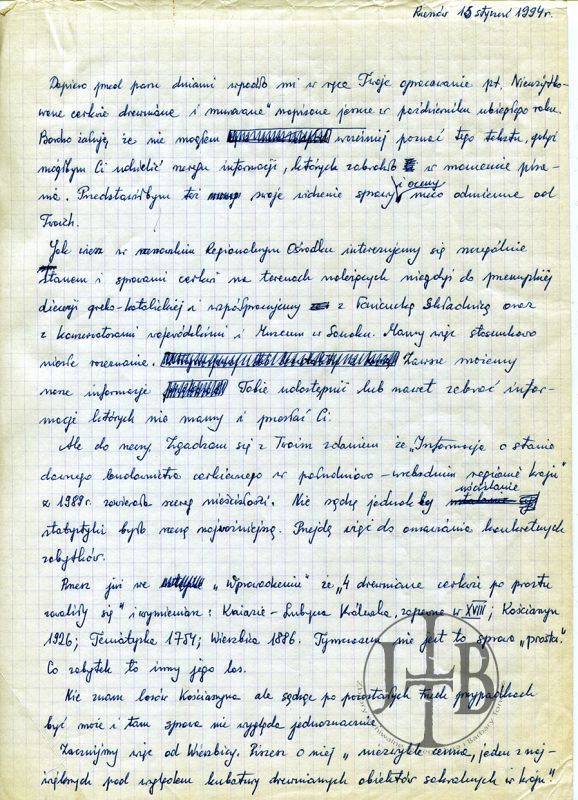 Rzeszów 15 styczeń 1994r.
Dopiero przed paru dniami wpadło mi w ręce Twoje opracowanie pt. Nieużytko-
wane cerkwie drewniane i murowane" napisane jeszcze w październiku ubiegłego roku.
Bardzo żałuję że nie mogłem wcześniej poznać tego tekstu, gdyż
mógłbym Ci udzielić szeregu informacji, których zabrakło w momencie pisa-
nia. Przedstawiłbym też swoje widzenie sprawy i oceny nieco odmienne od
Twoich.
Jak wiesz w rzeszowskim Regionalnym Ośrodku interesujemy się szczególnie
stanem i sprawami cerkwi na terenach należących niegdyś do przemyskiej
diecezji greko-katolickiej i współpracujemy z łańcucką Składnicą oraz
z konserwatorami wojewódzkimi i Muzeum w Sanoku. Mamy więc stosunkowo
niezłe rozeznanie. Zawsze możemy
nasze informacje Tobie udostępnić lub nawet zebrać infor-
macje których nie mamy i przesłać Ci.
Ale do rzeczy. Zgadzam się z Twoim zdaniem że „Informacja o stanie
dawnego budownictwa cerkiewnego w południowo-wschodnim regionie kraju"
z 1989r. zawierała szereg nieścisłości. Nie sądzę jednak by uściślanie
statystyki było rzeczą najważniejszą. Przejdę więc do omawiania konkretnych
zabytków.
Piszesz już we „Wprowadzeniu" że „4 drewniane cerkwie po prostu
zawaliły się" i wymieniasz: Kniazie - Lubycza Królewska, zapewne w XVIII; Kościaszyn
1926; Teniatyska 1754; Wierzbica 1886. Tymczasem nie jest to sprawa „prosta".
Co zabytek to inny jego los.
Nie znam losów Kościaszyna ale sądząc po pozostałych trzech przypadkach
być może i tam sprawa nie wygląda jednoznacznie.
Zacznijmy więc od Wierzbicy. Piszesz o niej „niezwykle cenna, jeden z naj-
większych pod względem kubatury drewnianych obiektów sakralnych w kraju".
JLTB